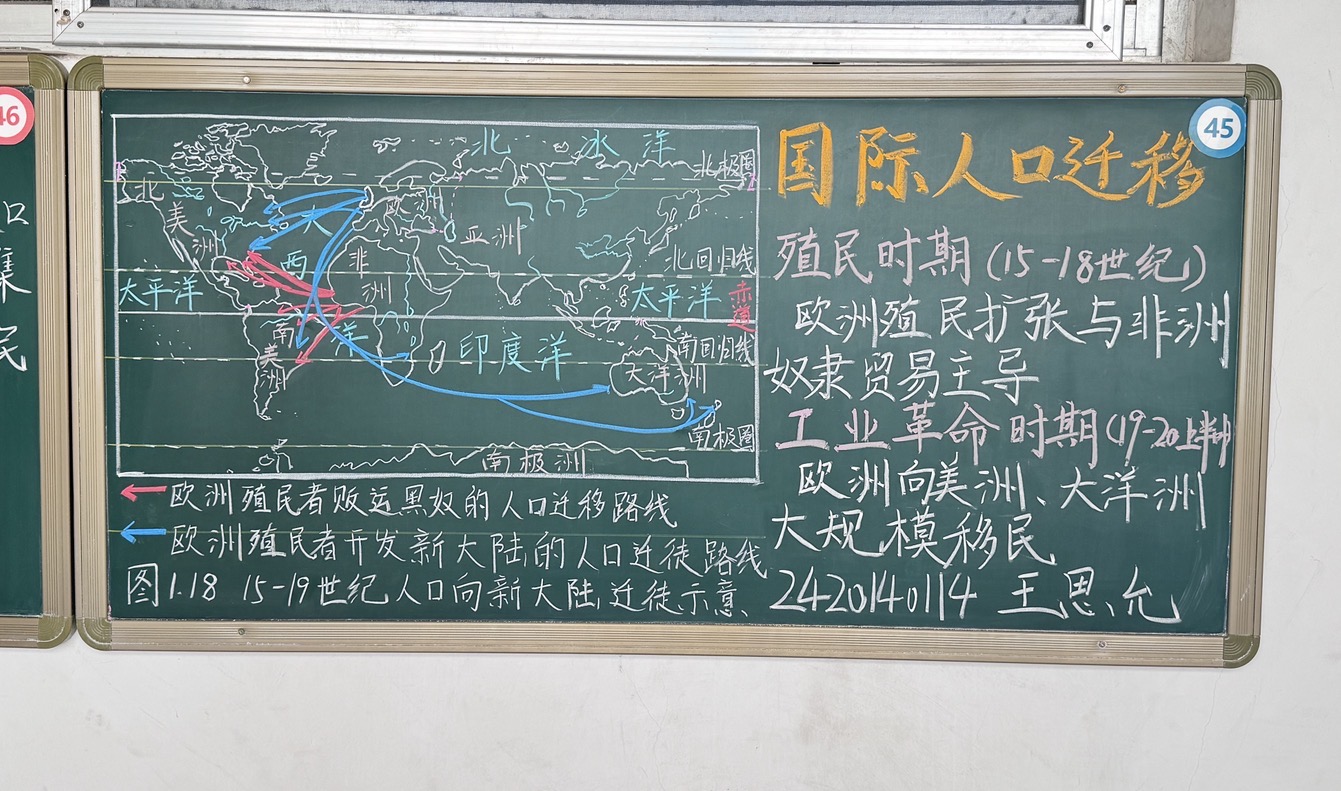 46
口
集
民
45
国际人口迁移
殖民时期(15-18世纪)
欧洲殖民扩张与非洲
奴隶贸易主导
工业革命时期(19-20上半叶)
欧洲向美洲、大洋洲
大规模移民
2420140114 王恩允
北冰洋
北极圈
北美洲
大西洋
欧洲
亚洲
非洲
北回归线
太平洋
太平洋
赤道
南美洲
印度洋
南回归线
大洋洲
南极圈
南极洲
欧洲殖民者贩运黑奴的人口迁移路线
欧洲殖民者开发新大陆的人口迁徒路线
图1.18 15-19世纪人口向新大陆迁徒示意